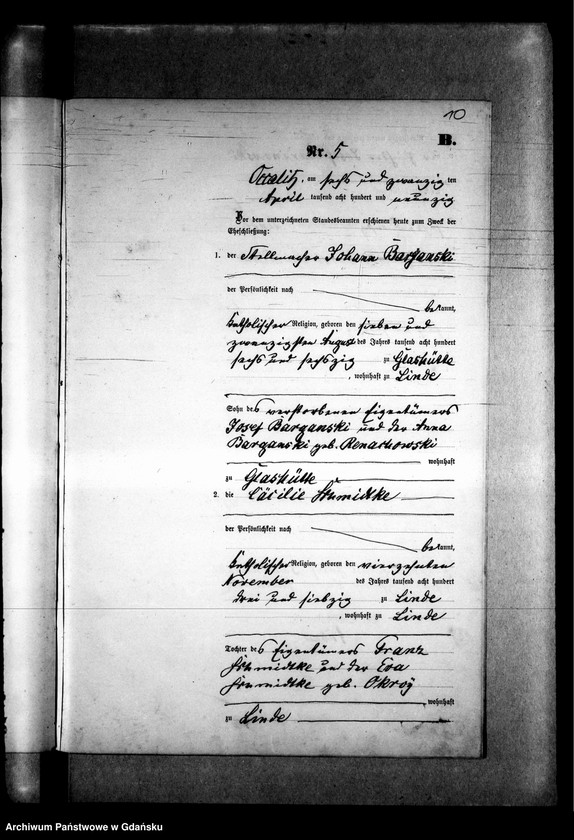 10
B.
Nr. 5
am sechs und zwanzig ten
April tausend acht hundert und neunzig
Vor dem unterzeichneten Standesbeamten erschienen heute zum Zweck der
Eheschließung:
1. der Stellmacher Johann Barganski
der Persönlichkeit nach
bekannt,
katholischer Religion, geboren den sieben und
zwanzigsten August des Jahres tausend acht hundert
sechs und sechszig zu Glashütte
, wohnhaft zu Linde
Sohn des verstorbenen Eigentümers
Josef Barganski und der Anna
Barganski geb. Renachowski
wohnhaft
zu Glashütte
2. die Cäcilie Schmidtke
der Persönlichkeit nach
bekannt,
katholischer Religion, geboren den vierzehnten
November des Jahres tausend acht hundert
drei und siebzig zu Linde
, wohnhaft zu Linde
Tochter des Eigentümers Franz
Schmidtke und der Eva
Schmidtke geb. Okroy
wohnhaft
zu Linde
Archiwum Państwowe w Gdańsku